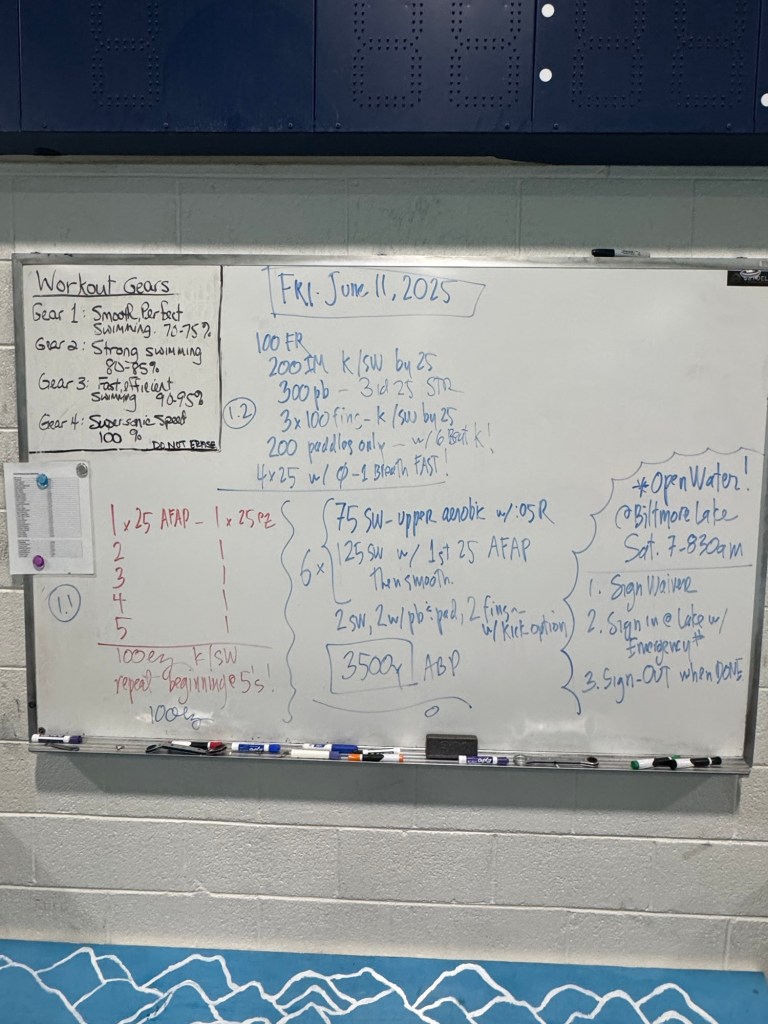 Workout Gears
Gear 1: Smooth, Perfect
swimming. 70-75%
Gear 2: Strong swimming
80-85%
Gear 3: Fast, efficient
swimming 90-95%
Gear 4: Supersonic Speed
100 % DO NOT ERASE
FRI. June 11, 2025
100 FR
200 IM K/SW by 25
300 pb - 3rd 25 STR
1.2
3x100 fins - K/SW by 25
200 paddles only - w/ 6 Beat K!
4x25 w/ Ø-1 Breath FAST!
1 x 25 AFAP - 1 x 25 ez
2 1
3 1
4 1
5 1
1.1
100 ez K/SW
repeat beginning @ 5's!
100 ez
6x
75 SW - upper aerobic w/ :05 R
125 SW w/ 1st 25 AFAP
then smooth.
2 SW, 2 w/ pb & pad, 2 fins
w/ Kick option
3500y ABP
*Open Water!
@Biltmore Lake
Sat. 7-830am
1. Sign Waiver
2. Sign in @ Lake w/
Emergency #
3. Sign-OUT when DONE